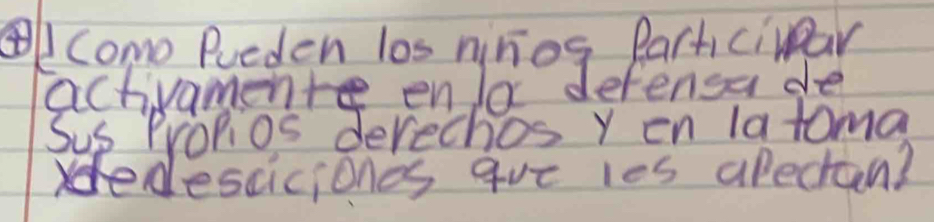 ④ ¿Como Pueden los niños Participar
activamente en la defensa de
Sus Propios derechos y en la toma
dedesciciones que les afectan?